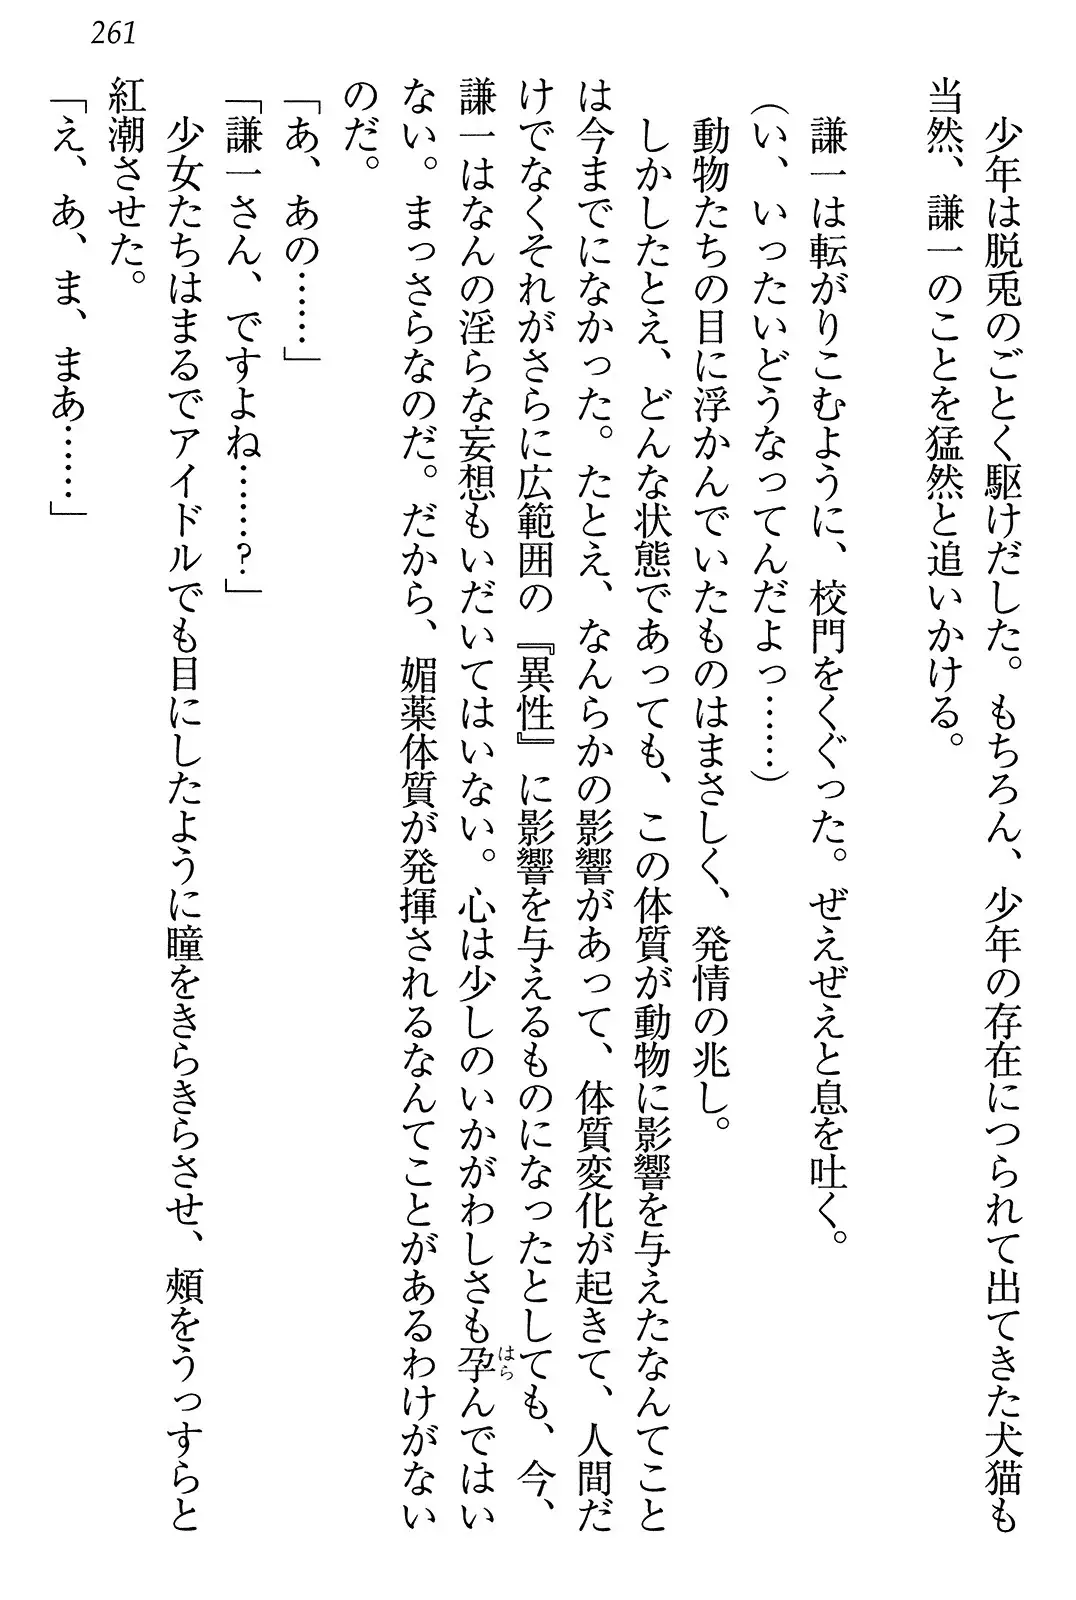 261
少年は脱兎のごとく駆けだした。もちろん、少年の存在につられて出てきた犬猫も
当然、謙一のことを猛然と追いかける。
謙一は転がりこむように、校門をくぐった。ぜえぜえと息を吐く。
（い、いったいどうなってんだよっ……）
動物たちの目に浮かんでいたものはまさしく、発情の兆し。
しかしたとえ、どんな状態であっても、この体質が動物に影響を与えたなんてこと
は今までになかった。たとえ、なんらかの影響があって、体質変化が起きて、人間だ
けでなくそれがさらに広範囲の『異性』に影響を与えるものになったとしても、今、
謙一はなんの淫らな妄想もいだいてはいない。心は少しのいかがわしさも孕んではい
はら
ない。まっさらなのだ。だから、媚薬体質が発揮されるなんてことがあるわけがない
のだ。
「あ、あの……」
「謙一さん、ですよね……？」
少女たちはまるでアイドルでも目にしたように瞳をきらきらさせ、頰をうっすらと
紅潮させた。
「え、あ、ま、まあ……」